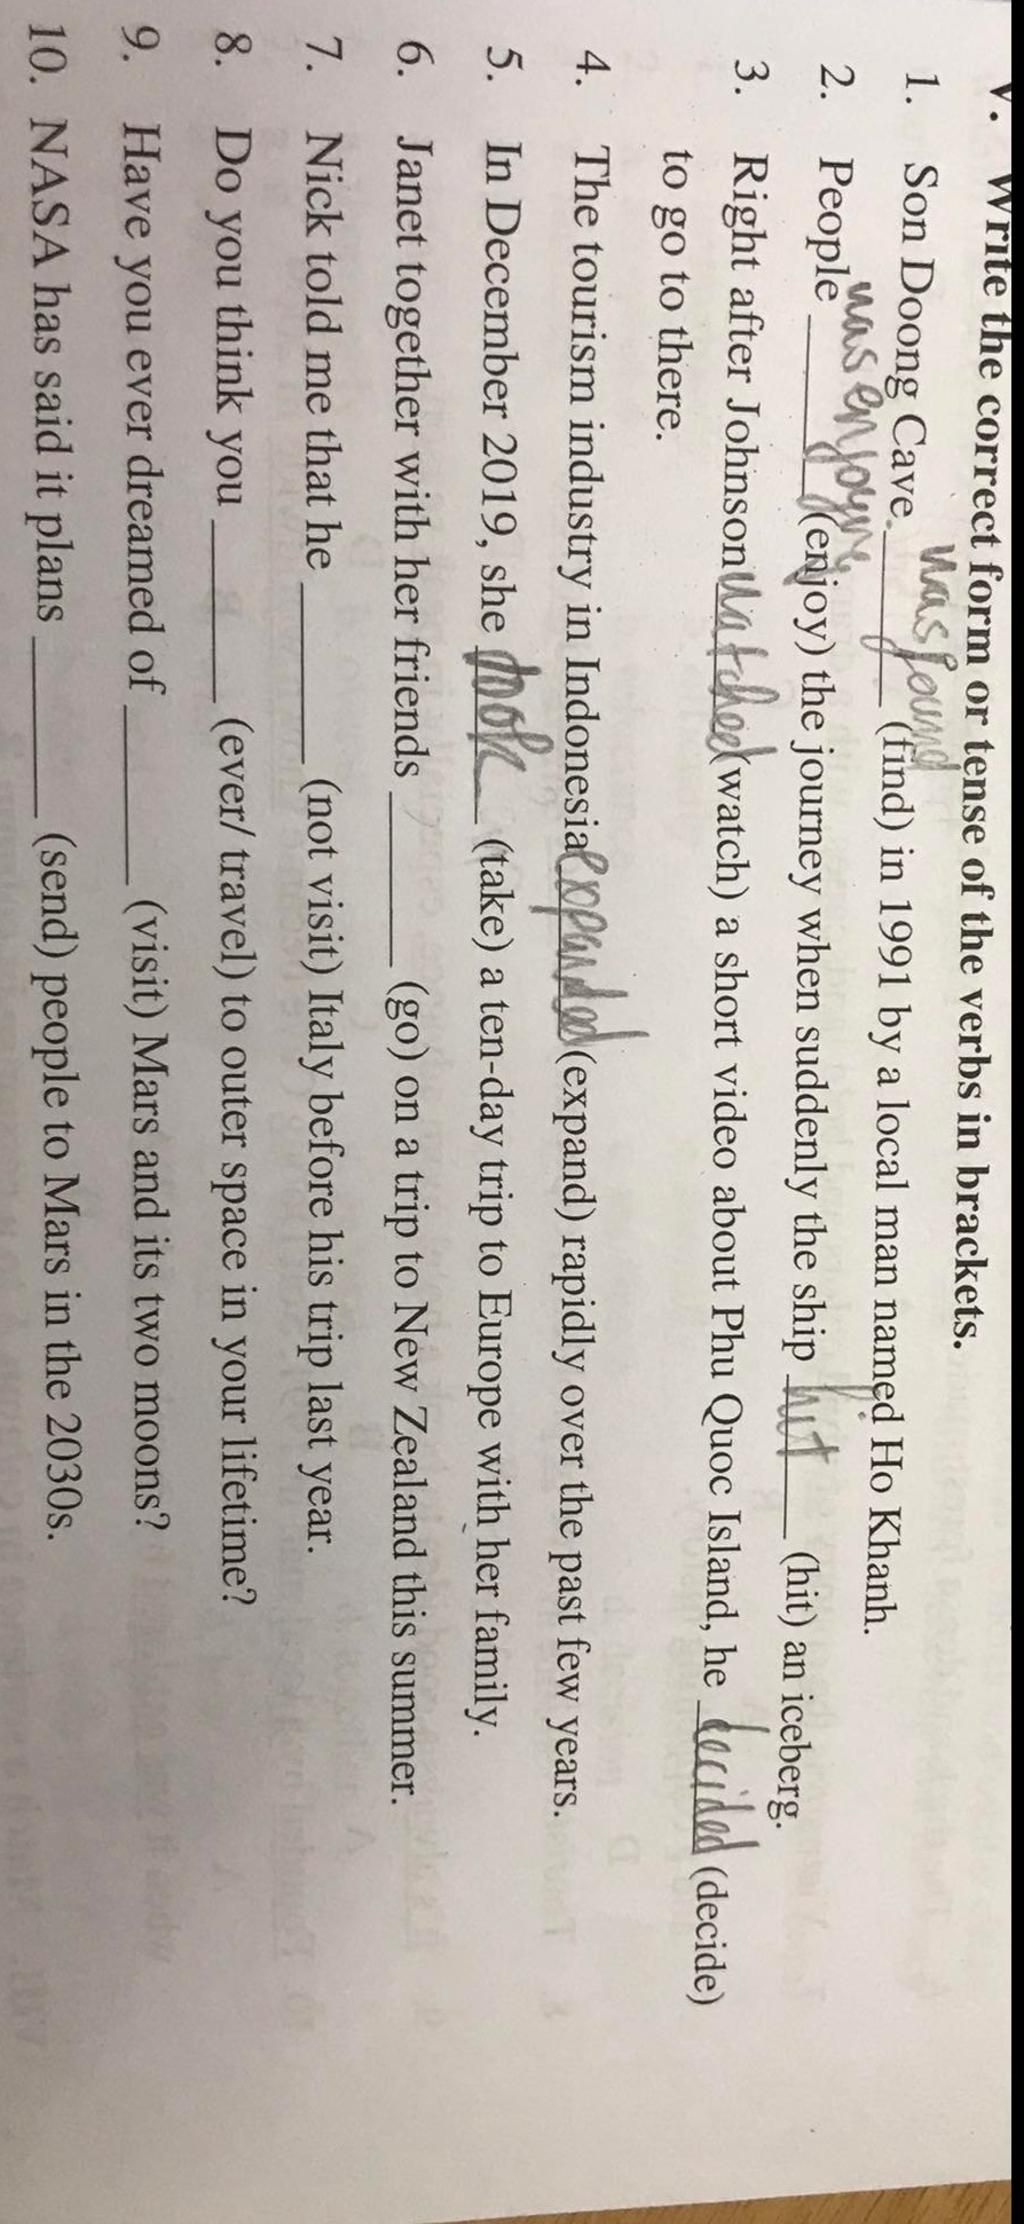 V. Write the correct form or tense of the verbs in brackets.
1. Son Doong Cave was found (find) in 1991 by a local man named Ho Khanh.
2. People was enjoying (enjoy) the journey when suddenly the ship hit (hit) an iceberg.
3. Right after Johnson watched (watch) a short video about Phu Quoc Island, he decided (decide)
to go to there.
4. The tourism industry in Indonesia expanded (expand) rapidly over the past few years.
5. In December 2019, she took (take) a ten-day trip to Europe with her family.
6. Janet together with her friends ________ (go) on a trip to New Zealand this summer.
7. Nick told me that he ________ (not visit) Italy before his trip last year.
8. Do you think you ________ (ever/ travel) to outer space in your lifetime?
9. Have you ever dreamed of ________ (visit) Mars and its two moons?
10. NASA has said it plans ________ (send) people to Mars in the 2030s.